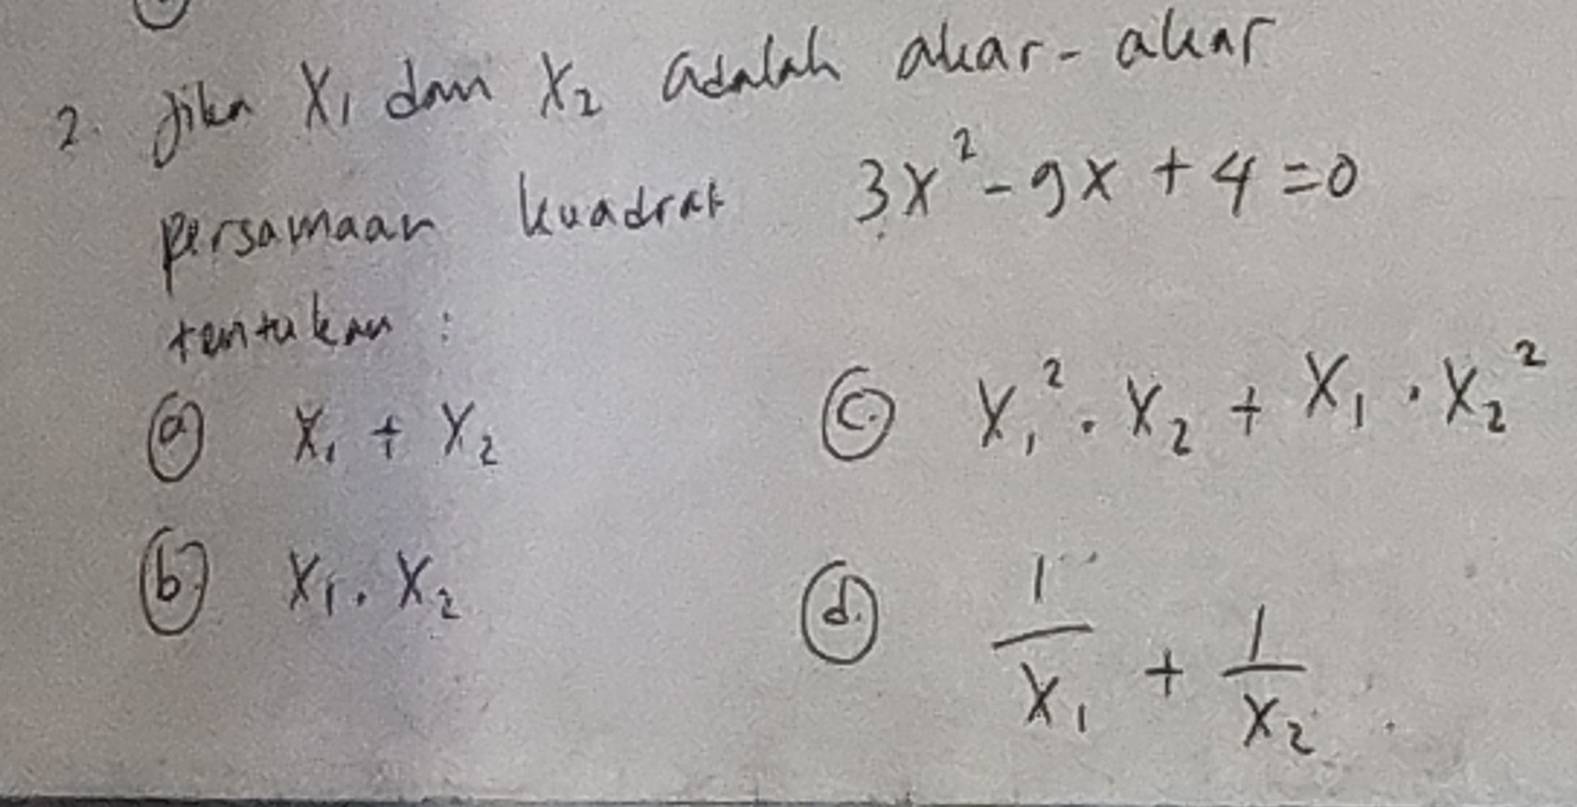 2. Jika X₁ dan X₂ adalah akar-akar
persamaan kuadrat 3x² - 9x + 4 = 0
tentukan :
(a) X₁ + X₂
(c.) X₁² . X₂ + X₁ . X₂²
(b.) X₁ . X₂
(d.) 1/X₁ + 1/X₂ .